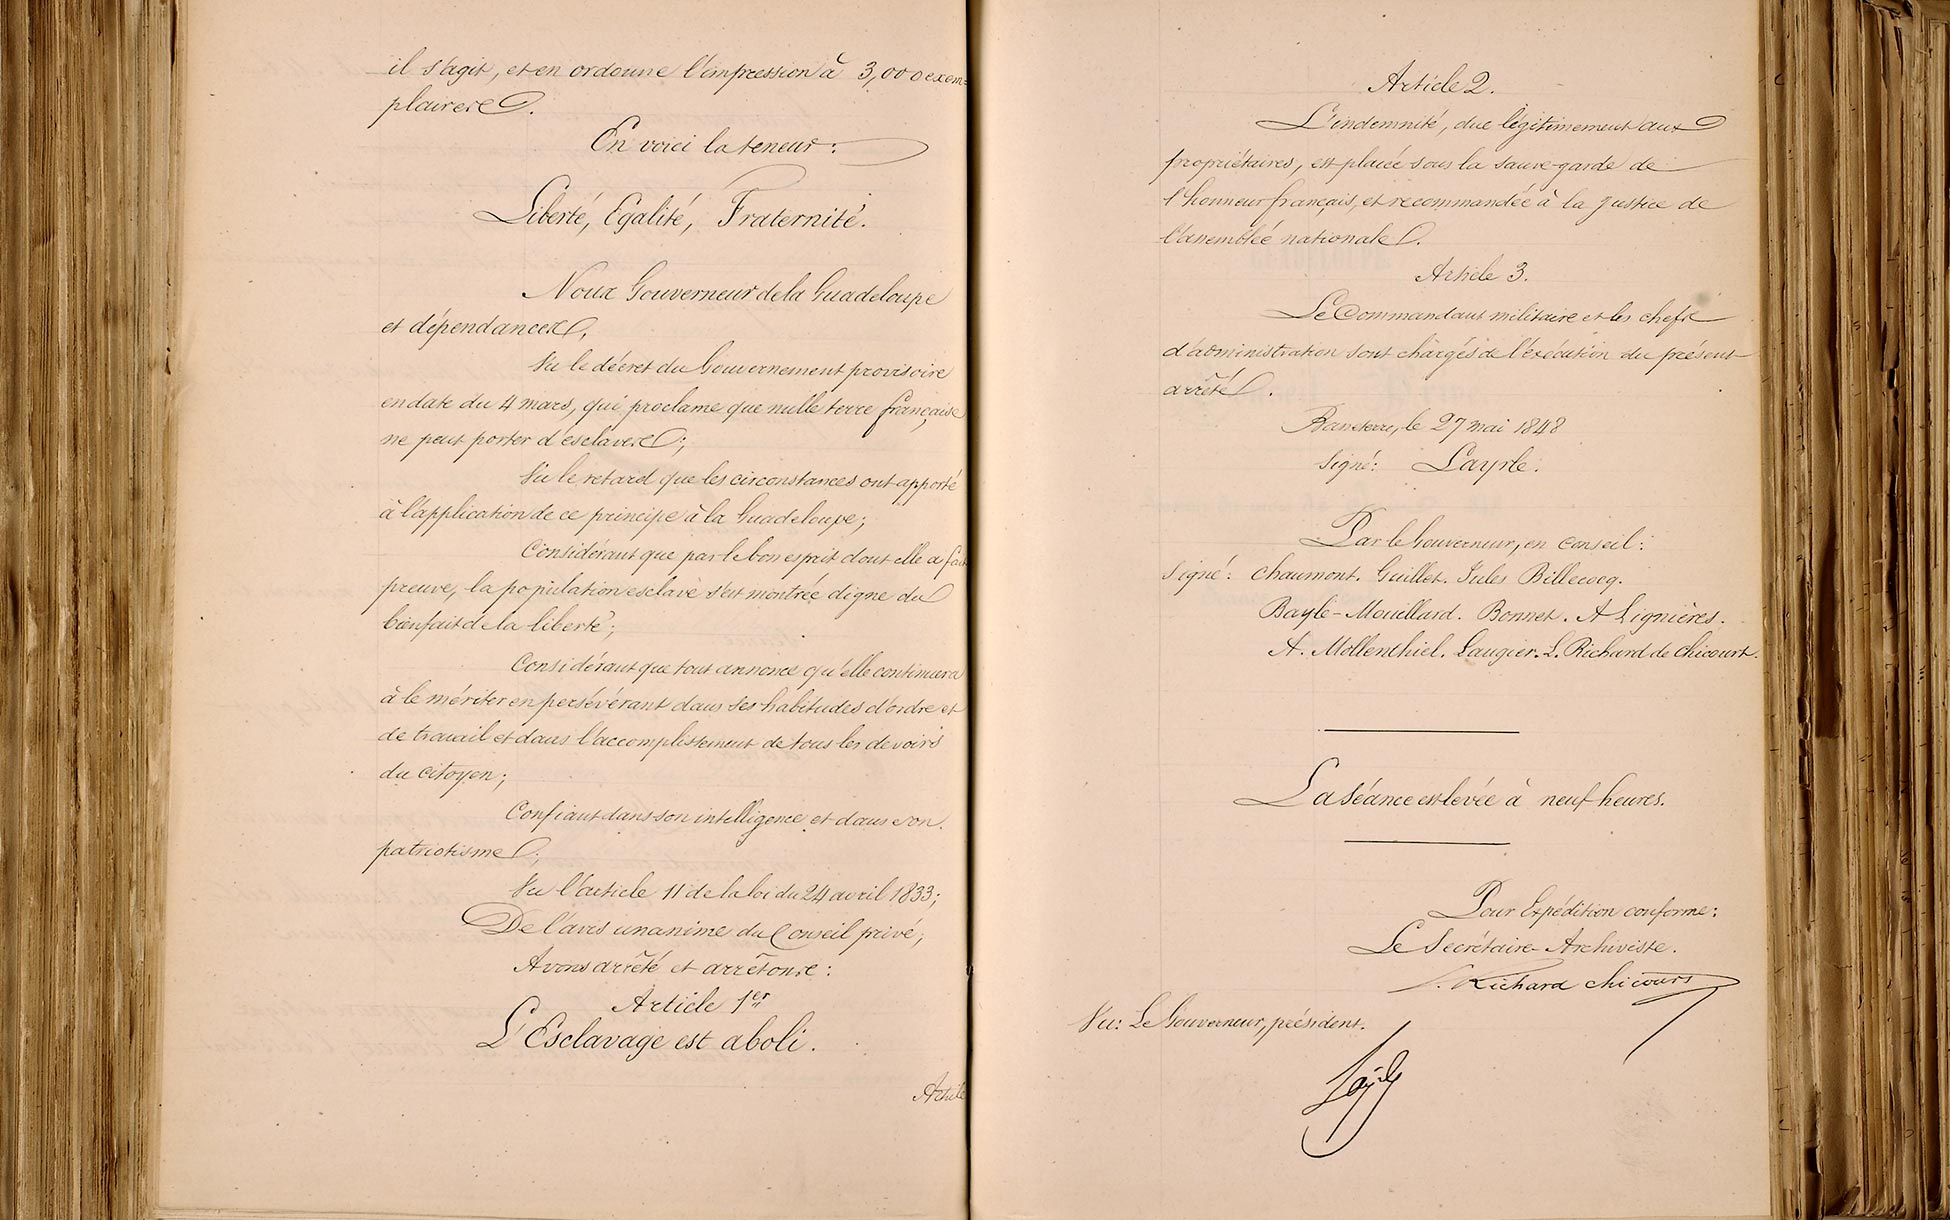 il s'agit, et en ordonne l'impression à 3,000 exem-
plaires.
En voici la teneur :
Liberté, Egalité, Fraternité.
Nous Gouverneur de la Guadeloupe
et dépendances,
Vu le décret du Gouvernement provisoire
en date du 4 mars, qui proclame que nulle terre française
ne peut porter d'esclaves ;
Vu le retard que les circonstances ont apporté
à l'application de ce principe à la Guadeloupe ;
Considérant que par le bon esprit dont elle a fait
preuve, la population esclave s'est montrée digne du
bienfait de la liberté ;
Considérant que tout annonce qu'elle continuera
à le mériter en persévérant dans ses habitudes d'ordre et
de travail et dans l'accomplissement de tous les devoirs
du citoyen ;
Confiant dans son intelligence et dans son
patriotisme ;
Vu l'article 11 de la loi du 24 avril 1833 ;
De l'avis unanime du Conseil privé ;
Avons arrêté et arrêtons :
Article 1er
L'Esclavage est aboli.
Article
Article 2.
L'indemnité, due légitimement aux
propriétaires, est placée sous la sauve-garde de
l'honneur français, et recommandée à la justice de
l'assemblée nationale.
Article 3.
Le Commandant militaire et les chefs
d'administration sont chargés de l'exécution du présent
arrêté.
Basseterre, le 27 mai 1848
Signé : Layrle.
Par le Gouverneur, en conseil :
Signé : Chaumont. Guillet. Jules Billecocq.
Bayle-Mouillard. Bonnet. A Lignières.
A. Mollenthiel. Laugier. L. Richard de Chicourt.
La séance est levée à neuf heures.
Pour Expédition conforme :
Le Secrétaire-Archiviste.
L. Richard Chicourt
Vu : Le Gouverneur, président.
Layrle